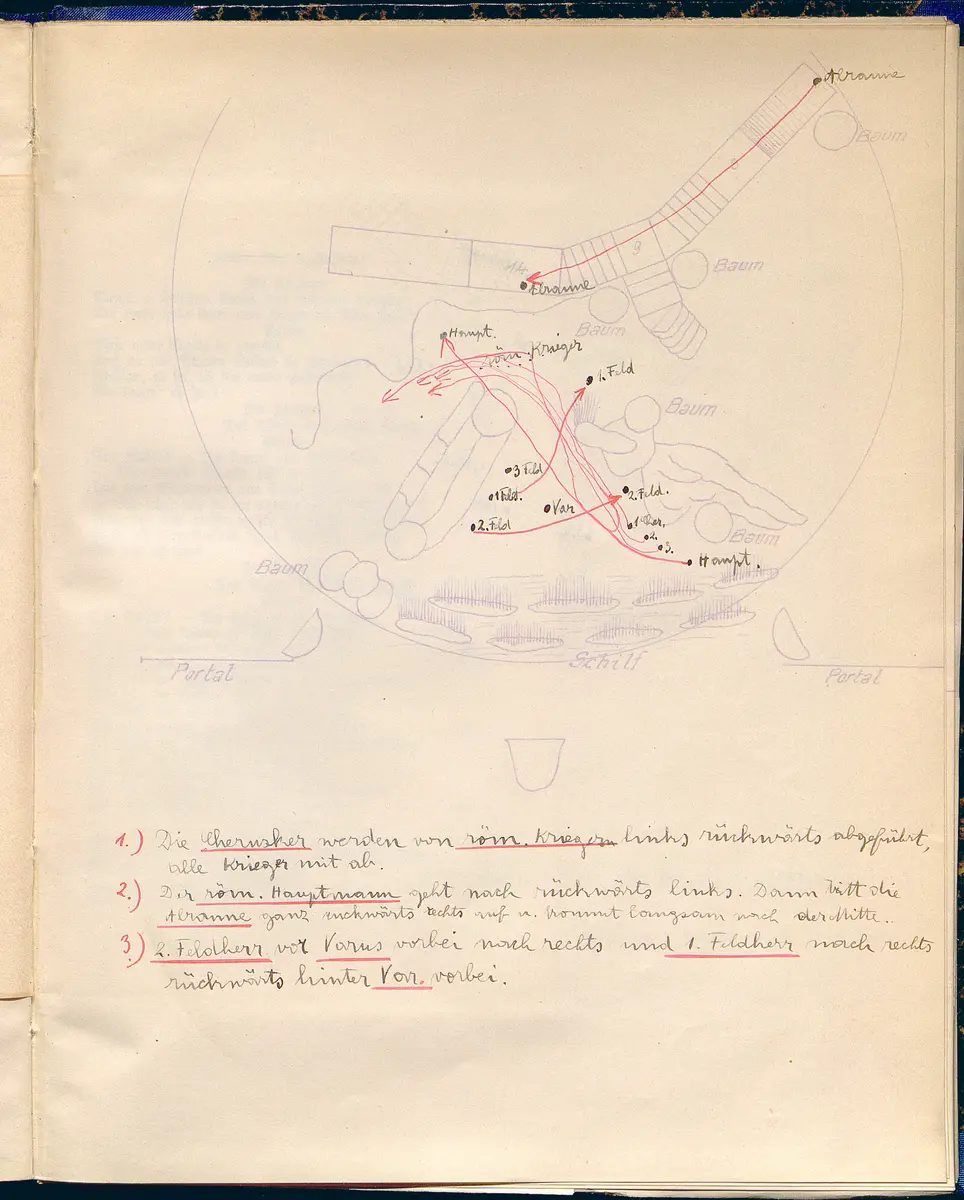 Alraune
Baum
8
9
Baum
14
Alraune
Baum
Haupt.
röm. Krieger
1. Feld
Baum
3 Feld
1 Feld.
2. Feld.
Var
2. Feld
1 Cher.
2.
3.
Baum
Haupt.
Baum
Schilf
Portal
Portal
1.) Die Cherusker werden von röm. Kriegern links rückwärts abgeführt,
alle Krieger mit ab.
2.) Der röm. Hauptmann geht nach rückwärts links. Dann tritt die
Alraune ganz rückwärts rechts auf u. kommt langsam nach der Mitte..
3.) 2. Feldherr vor Varus vorbei nach rechts und 1. Feldherr nach rechts
rückwärts hinter Var. vorbei.